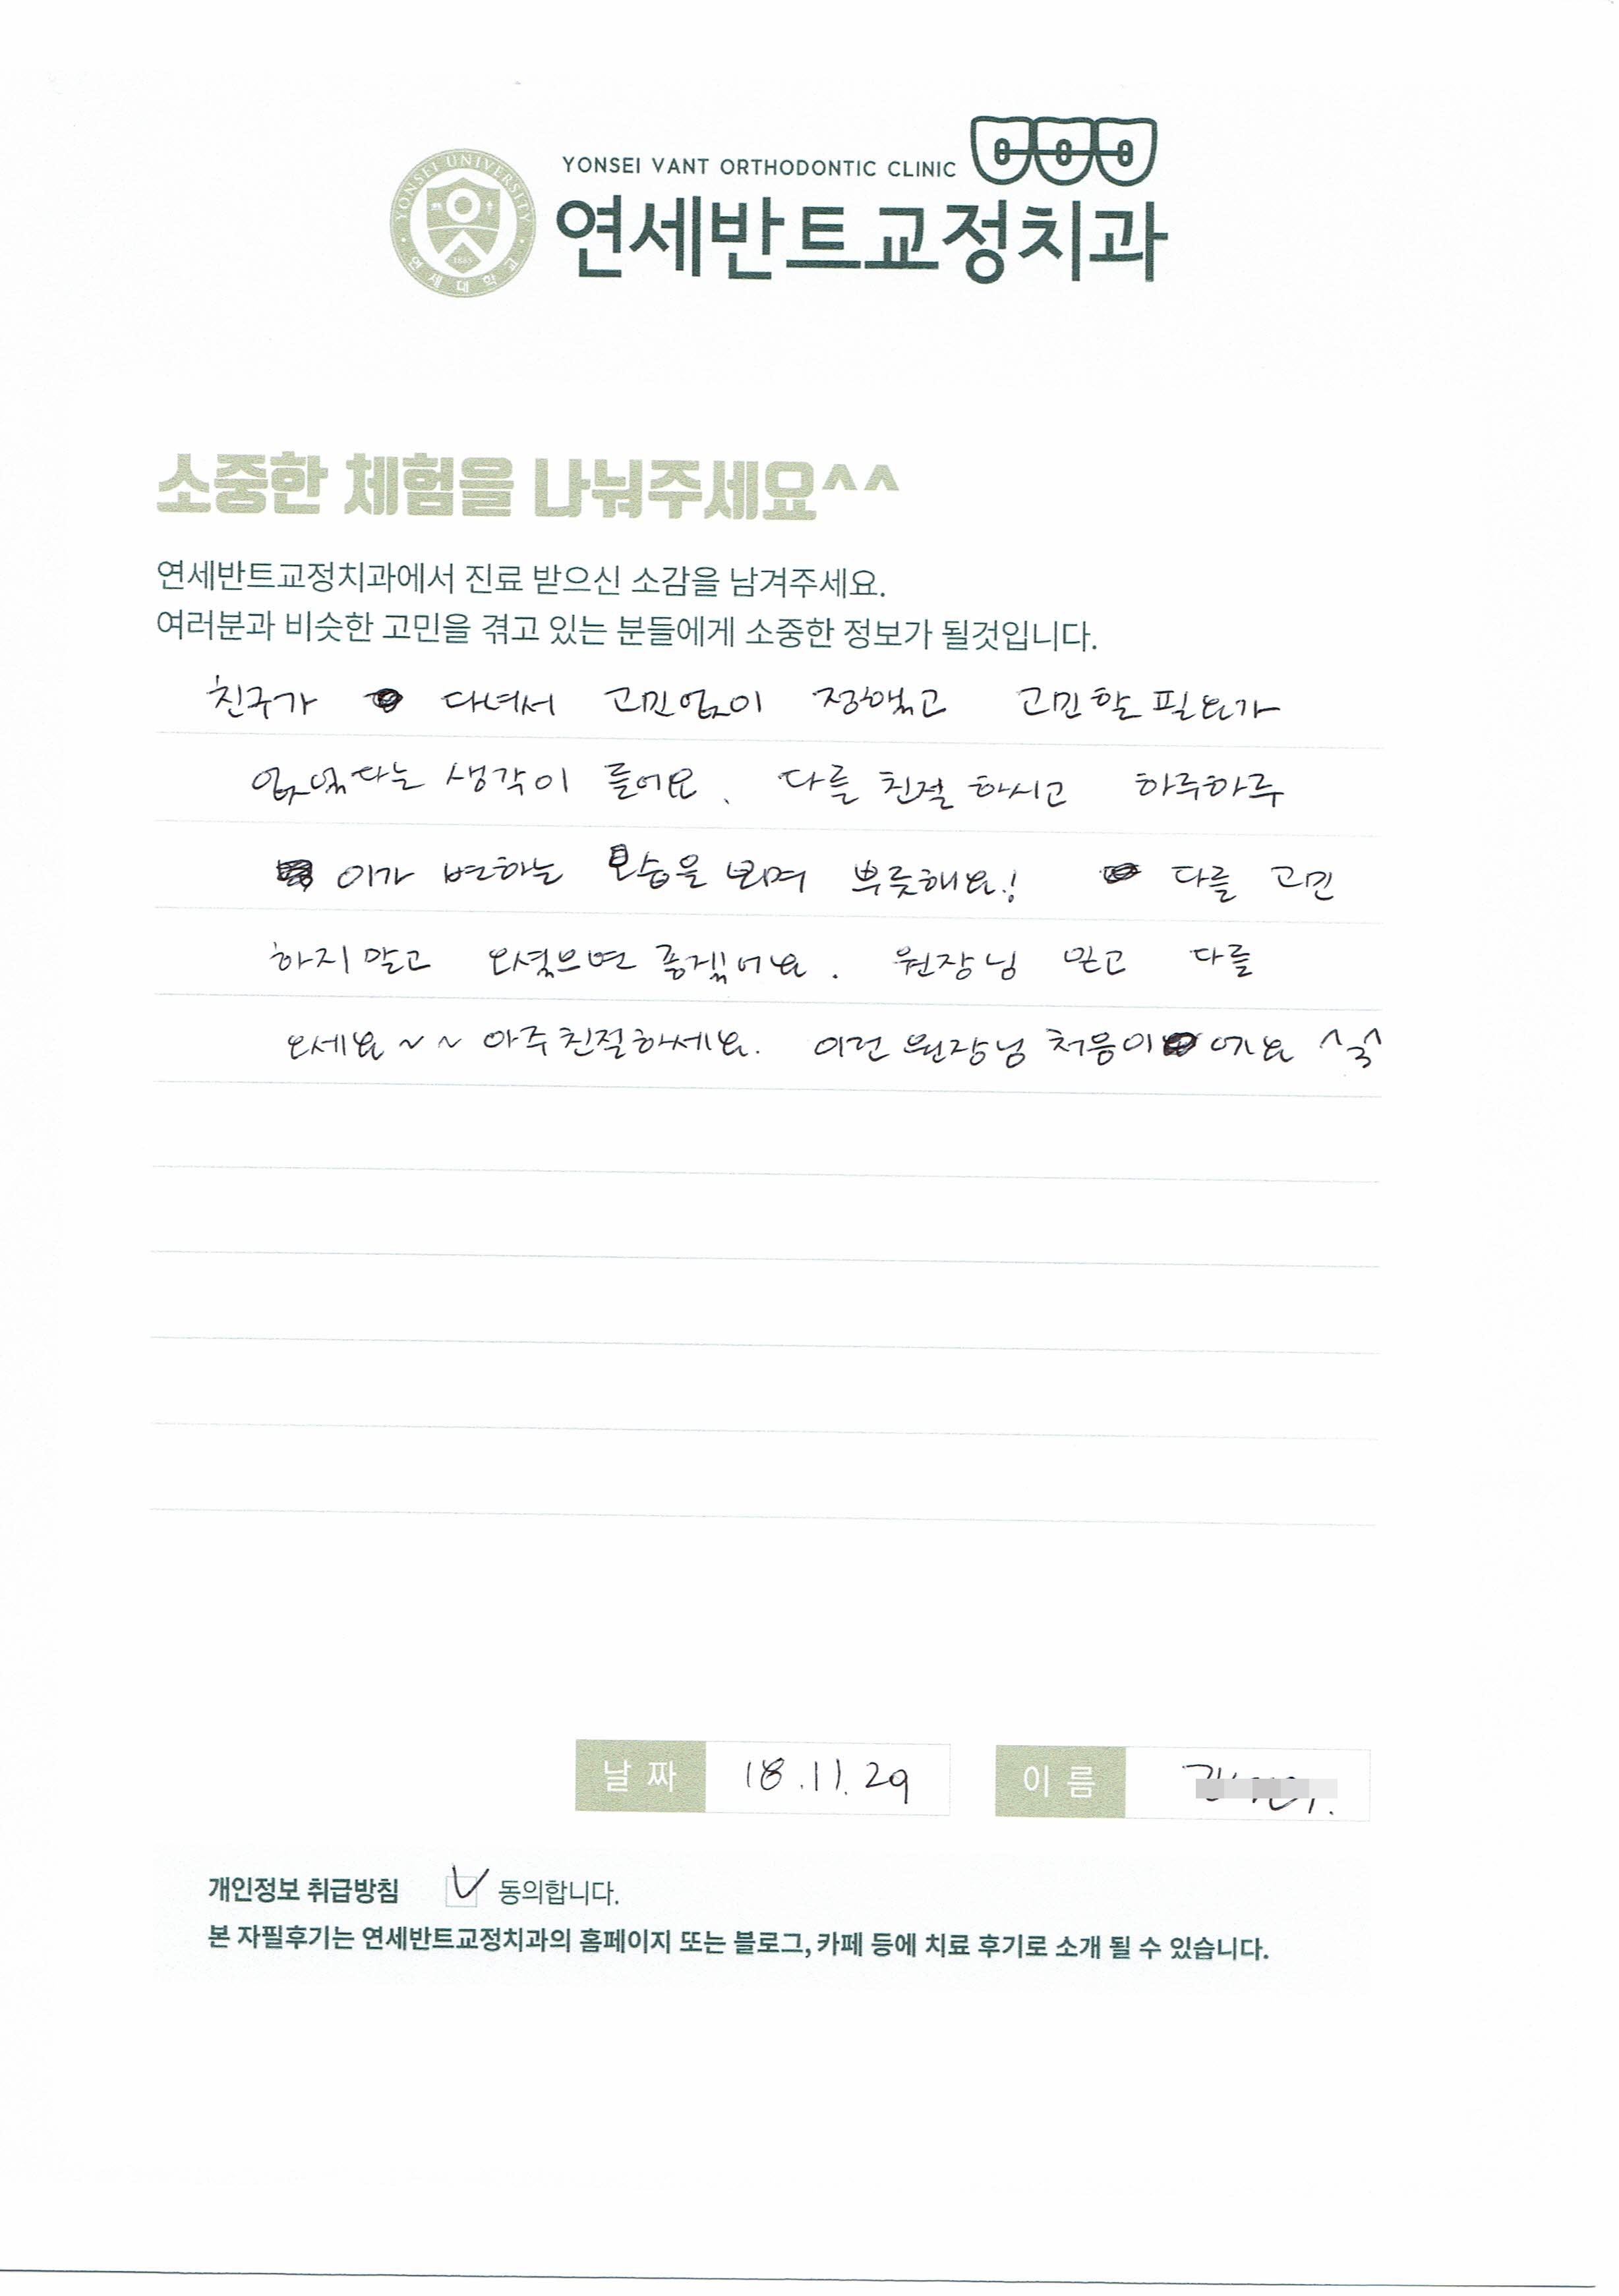 YONSEI VANT ORTHODONTIC CLINIC
YONSEI UNIVERSITY
1885
연세대학교
연세반트교정치과
소중한 체험을 나눠주세요^^
연세반트교정치과에서 진료 받으신 소감을 남겨주세요.
여러분과 비슷한 고민을 겪고 있는 분들에게 소중한 정보가 될것입니다.
친구가 다녀서 고민없이 정했고 고민할 필요가
없었다는 생각이 들어요. 다들 친절 하시고 하루하루
이가 변하는 모습을 보며 뿌듯해요! 다들 고민
하지 말고 오셨으면 좋겠어요. 원장님 믿고 다들
오세요~~ 아주 친절하세요. 이런 원장님 처음이에요 ^^
날짜 18.11.29 이름
개인정보 취급방침 동의합니다.
본 자필후기는 연세반트교정치과의 홈페이지 또는 블로그, 카페 등에 치료 후기로 소개 될 수 있습니다.